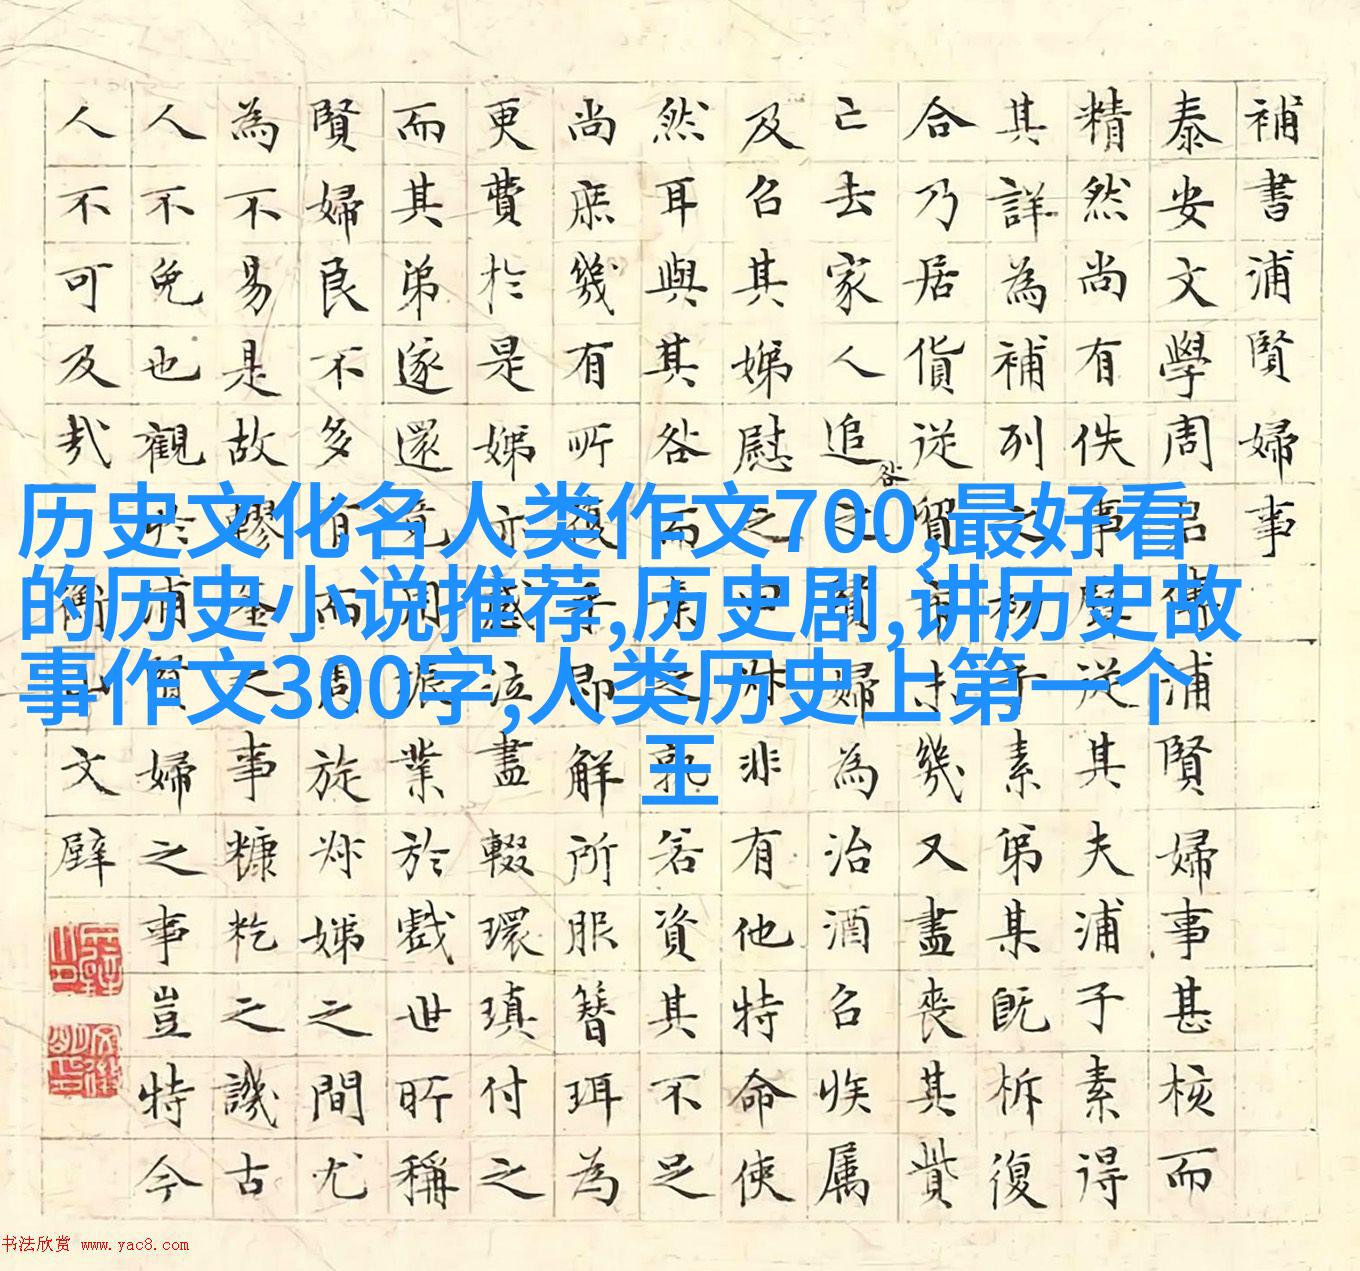 補書浦賢婦事
泰安文學周浦賢婦事甚核而
精然尚有佚事従其夫浦子素得
其詳為補列之于素弟某既柝復
合乃居貨従貿幾又盡喪其貲
已去家人追之婦為治酒召族属
及召其娣慰之非有他特命使
然耳與其咎而孰若資其不足
尚庶幾有所復乎即解所服簪珥為
更費於是娣亦感泣盡輟環瑱付之
而其弟遂還竟用振業於戲世所稱
賢婦良不多有而周旋娣之間尤
為不易是故繆之事糠籺之譏古
人不免也觀於浦賢婦之事豈特今
人不可及哉衡山文璧
历史文化名人类作文700,最好看
的历史小说推荐,历史剧,讲历史故
事作文300字,人类历史上第一个
王
书法欣赏 www.yac8.com